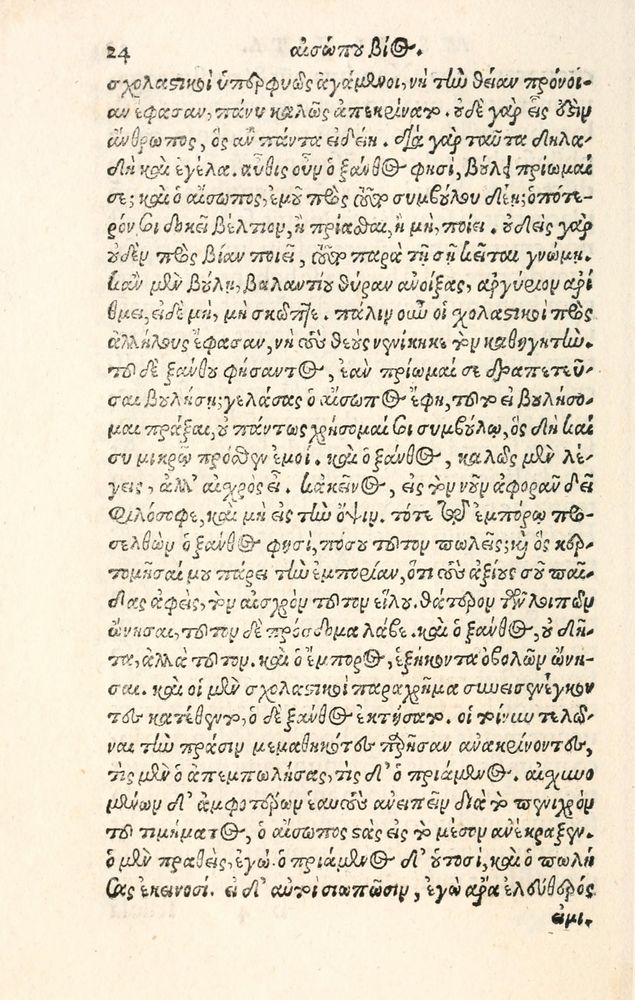 24 αἰσώπου βίος.
σχολαστικοὶ ὑπερφυῶς ἀγάμενοι, νὴ τὴν θείαν πρόνοι-
αν ἔφασαν, πάνυ καλῶς ἀπεκρίνατο. οὐδὲ γὰρ εἷς οὐδὲν
ἄνθρωπος, ὃς ἂν πάντα εἰδείη. διὰ γὰρ ταῦτα δηλα-
δὴ καὶ ἐγέλα. αὖθις οὖν ὁ ξάνθος φησὶ, βούλει πρίωμαί
σε; καὶ ὁ αἴσωπος, ἐμοῦ πρὸς τοῦτο συμβούλου δέῃ; ὁπότε-
ρόν σοι δοκεῖ βέλτιον, ἢ πρίασθαι, ἢ μὴ, ποίει. οὐδεὶς γὰρ
οὐδὲν πρὸς βίαν ποιεῖ, τοῦτο παρὰ τῇ σῇ κεῖται γνώμῃ.
κἂν μὲν βούλῃ, βαλαντίου θύραν ἀνοίξας, ἀργύριον ἀρί
θμει, εἰ δὲ μὴ, μὴ σκῶπτε. πάλιν οὖν οἱ σχολαστικοὶ πρὸς
ἀλλήλους ἔφασαν, νὴ τοὺς θεοὺς νενίκηκε τὸν καθηγητήν.
τοῦ δὲ ξάνθου φήσαντος, ἐὰν πρίωμαί σε δραπετεῦ-
σαι βουλήσῃ; γελάσας ὁ αἴσωπος ἔφη, τοῦτο εἰ βουλήσο-
μαι πρᾶξαι, οὐ πάντως χρήσομαί σοι συμβούλῳ, ὡς δὴ καὶ
σὺ μικρῷ πρόσθεν ἐμοί. καὶ ὁ ξάνθος, καλῶς μὲν λέ-
γεις, ἀλλ' αἰσχρὸς εἶ. κἀκεῖνος, εἰς τὸν νοῦν ἀφορᾶν δεῖ
φιλόσοφε, καὶ μὴ εἰς τὴν ὄψιν. τότε τῷ ἐμπόρῳ προ-
σελθὼν ὁ ξάνθος φησὶ, πόσου τοῦτον πωλεῖς; καὶ ὃς κερ-
τομῆσαί μου πάρει τὴν ἐμπορίαν, ὅτι τοὺς ἀξίους σοῦ παῖ-
δας ἀφεὶς, τὸν αἰσχρὸν τοῦτον εἵλου. θάτερον τῶν λοιπῶν
ὤνησαι, τοῦτον δὲ πρόσδομα λάβε. καὶ ὁ ξάνθος, οὐ δῆ-
τα, ἀλλὰ τοῦτον. καὶ ὁ ἔμπορος, ἑξήκοντα ὀβολῶν ὤνη-
σαι. καὶ οἱ μὲν σχολαστικοὶ παραχρῆμα συνεισενεγκόν
τες κατέθεντο, ὁ δὲ ξάνθος ἐκτήσατο. οἱ τοίνυν τελῶ-
ναι τὴν πρᾶσιν μεμαθηκότες παρῆσαν ἀνακρίνοντες,
τίς μὲν ὁ ἀπεμπωλήσας, τίς δ' ὁ πριάμενος. αἰσχυνο
μένων δ' ἀμφοτέρων ἑαυτοὺς ἀνειπεῖν διὰ τὸ πενιχρὸν
τοῦ τιμήματος, ὁ αἴσωπος στὰς εἰς τὸ μέσον ἀνέκραξεν.
ὁ μὲν πραθεὶς, ἐγώ. ὁ πριάμενος δ' οὑτοσὶ, καὶ ὁ πωλή
σας ἐκεινοσί. εἰ δ' αὐτοὶ σιωπῶσιν, ἐγὼ ἄρα ἐλεύθερός
εἰμι.